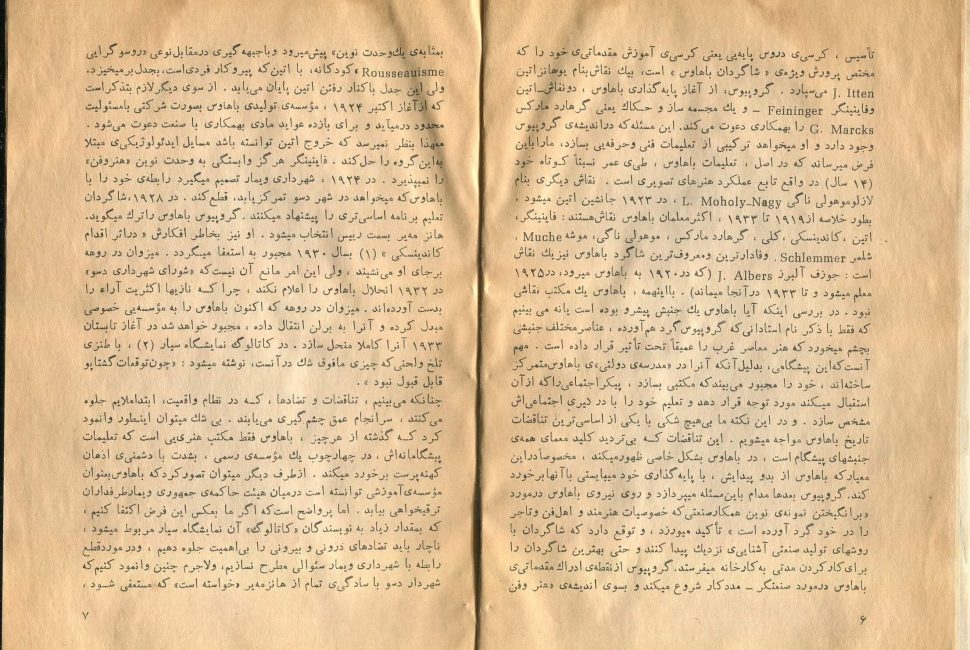 تأسیس ، کرسی‌ی دروس پایه‌یی یعنی کرسی‌ی آموزش مقدماتی‌ی خود را که
مختص پرورش ویژه‌ی « شاگردان باهاوس » است، بیك نقاش‌بنام یوهانزاتین
J. Itten می‌سپارد . گروپیوس، از آغاز پایه‌گذاری باهاوس ، دونقاش_اتین
وفاینینگر Feininger _ و یك مجسمه ساز و حکاك یعنی گرهارد مارکس
G. Marcks را بهمکاری دعوت می‌کند. این مسئله‌که دراندیشه‌ی گروپیوس
وجود دارد و او میخواهد ترکیبی از تعلیمات فنی وحرفه‌یی بسازد، مارا باین
فرض میرساند که در اصل ، تعلیمات باهاوس ، طی‌ی عمر نسبتاً کوتاه خود
(۱۴ سال) در واقع تابع عملکرد هنرهای تصویری است . نقاش دیگری بنام
لازلوموهولی ناگی L. Moholy_Nagy ، در ۱۹۲۳ جانشین اتین میشود .
بطور خلاصه از۱۹۱۹ تا ۱۹۳۳ ، اکثرمعلمان باهاوس نقاش‌هستند : فاینینگر،
اتین ، کاندینسکی ،کلی ، گرهارد مارکس ، موهولی ناگی، موشه Muche ،
شلمر Schlemmer . وفادارترین ومعروف‌ترین شاگرد باهاوس نیزیك نقاش
است : جوزف آلبرز J. Albers (که در۱۹۲۰ به باهاوس میرود، در۱۹۲۵
معلم میشود و تا ۱۹۳۳ درآنجا میماند) . بااینهمه ، باهاوس یك مکتب نقاشی
نبود . در بررسی اینکه آیا باهاوس یك جنبش پیشرو بوده است یانه می بینیم
که فقط با ذکر نام استادانی‌که گروپیوس‌گرد هم‌آورده ، عناصرمختلف جنبشی
بچشم میخورد که هنر معاصر غرب را عمیقاً تحت تأثیر قرار داده است . مهم
آنست‌که‌این پیشگامی، بدلیل‌آنکه آنرا در «مدرسه‌ی دولتی»‌ی باهاوس‌متمرکز
ساخته‌اند ، خود را مجبور می‌بیندکه مکتبی بسازد ، پیکراجتماعی‌راکه ازآن
استقبال میکند مورد توجه قرار دهد و تعلیم خود را با در گیری اجتماعی‌اش
مشخص سازد . و در این نکته ما بی‌هیچ شکی با یکی از اساسی‌ترین تناقضات
تاریخ باهاوس مواجه میشویم . این تناقضات کــه بی‌تردید کلید معمای همه‌ی
جنبشهای پیشگام است ، در باهاوس بشکل خاصی ظهورمیکند ، مخصوصاًدراین
معیارکه باهاوس از بدو پیدایش ، با پایه‌گذاری خود میبایستی باآنهابرخورد
کند.گروپیوس بعدها مدام باین‌مسئله میپردازد و روی نیروی باهاوس درمورد
«برانگیختن نمونه‌ی نوین همکارصنعتی‌که خصوصیات هنرمند و اهل‌فن وتاجر
را در خود گرد آورده است » تأکید میورزد ، و توقع دارد که شاگردان با
روشهای تولید صنعتی آشنایی‌ی نزدیك پیدا کنند و حتی بهترین شاگردان را
برای کارکردن مدتی به‌کارخانه میفرستد.گروپیوس ازنقطه‌ی ادراك مقدماتی‌ی
باهاوس درمورد صنعتگر _ مددکار شروع میکند و بسوی اندیشه‌ی «هنر وفن
۶
بمثابه‌ی یك‌وحدت نوین» پیش‌میرود وباجبهه گیری درمقابل‌نوعی «روسو گرایی
Rousseauisme »کودکانه، با اتین‌که پیروکار فردی‌است،بجدل‌برمیخیزد.
ولی این جدل باکنار رفتن اتین پایان می‌یابد . از سوی دیگرلازم بتذکراست
که ازآغاز اکتبر ۱۹۲۴ ، مؤسسه‌ی تولیدی باهاوس بصورت شرکتی بامسئولیت
محدود درمیآید و برای بازده عواید مادی بهمکاری با صنعت دعوت می‌شود .
معهذا بنظر نمیرسد که خروج اتین توانسته باشد مسایل ایدئولوژیکی‌ی مبتلا
به‌این‌گروه را حل‌کند . فاینینگر هرگز وابستگی به وحدت نوین «هنروفن»
را نمیپذیرد . در ۱۹۲۴ ، شهرداری ویمار تصمیم میگیرد رابطه‌ی خود را با
باهاوس‌که میخواهد در شهر دسو تمرکز یابد، قطع‌کند . در ۱۹۲۸،شاگردان
تعلیم برنامه اساسی‌تری را پیشنهاد میکنند .گروپیوس باهاوس راترك میگوید.
هانز مه‌یر بسمت رییس انتخاب میشود . او نیز بخاطر افکارش « دراثر اقدام
کاندینسکی » (۱) بسال ۱۹۳۰ مجبور به استعفا میگردد . میزوان در روهه
برجای او می‌نشیند ، ولی این امر مانع آن نیست‌که «شورای شهرداری دسو»
در ۱۹۳۲ انحلال باهاوس را اعلام نکند ، چرا کــه نازیها اکثریت آراء را
بدست آورده‌اند . میزوان در روهه که اکنون باهاوس را به مؤسسه‌یی خصوصی
مبدل کرده و آنرا به برلن انتقال داده ، مجبور خواهد شد در آغاز تابستان
۱۹۳۳ آنرا کاملا منحل سازد . در کاتالوگ نمایشگاه سیار (۲) ، با طنزی
تلخ ولحنی‌که چیزی مافوق شك درآنست، نوشته میشود : «چون‌توقعات گشتاپو
قابل قبول نبود » .
چنانکه می‌بینیم ، تناقضات و تضادها ، کــه در نظام واقعیت، ابتداملایم جلوه
می‌کنند ، سرانجام عمق چشم‌گیری می‌یابند . بی شك میتوان اینطور وانمود
کرد کــه گذشته از هرچیز ، باهاوس فقط مکتب هنری‌یی است که تعلیمات
پیشگامانه‌اش ، در چهارچوب یك مؤسسه‌ی رسمی ، بشدت با دشمنی‌ی اذهان
کهنه‌پرست برخورد میکند . ازطرف دیگر میتوان تصورکردکه باهاوس‌بعنوان
مؤسسه‌ی‌آموزشی توانسته است درمیان هیئت حاکمه‌ی جمهوری ویمارطرفداران
ترقیخواهی بیابد . اما پرواضح است‌که اگر ما بعکس این فرض اکتفا کنیم ،
که بمقدار زیاد به نویسندگان «کاتالوگ» آن نمایشگاه سیار مربوط میشود ،
ناچار باید تضادهای درونی و بیرونی را بی‌اهمیت جلوه دهیم ، ودرموردقطع
رابطه با شهرداری ویمار سئوالی مطرح نسازیم، ولاجرم چنین وانمود کنیم‌که
شهردار دسو با سادگی‌ی تمام از هانزمه‌یر «خواسته است» که مستعفی شــود ،
۷